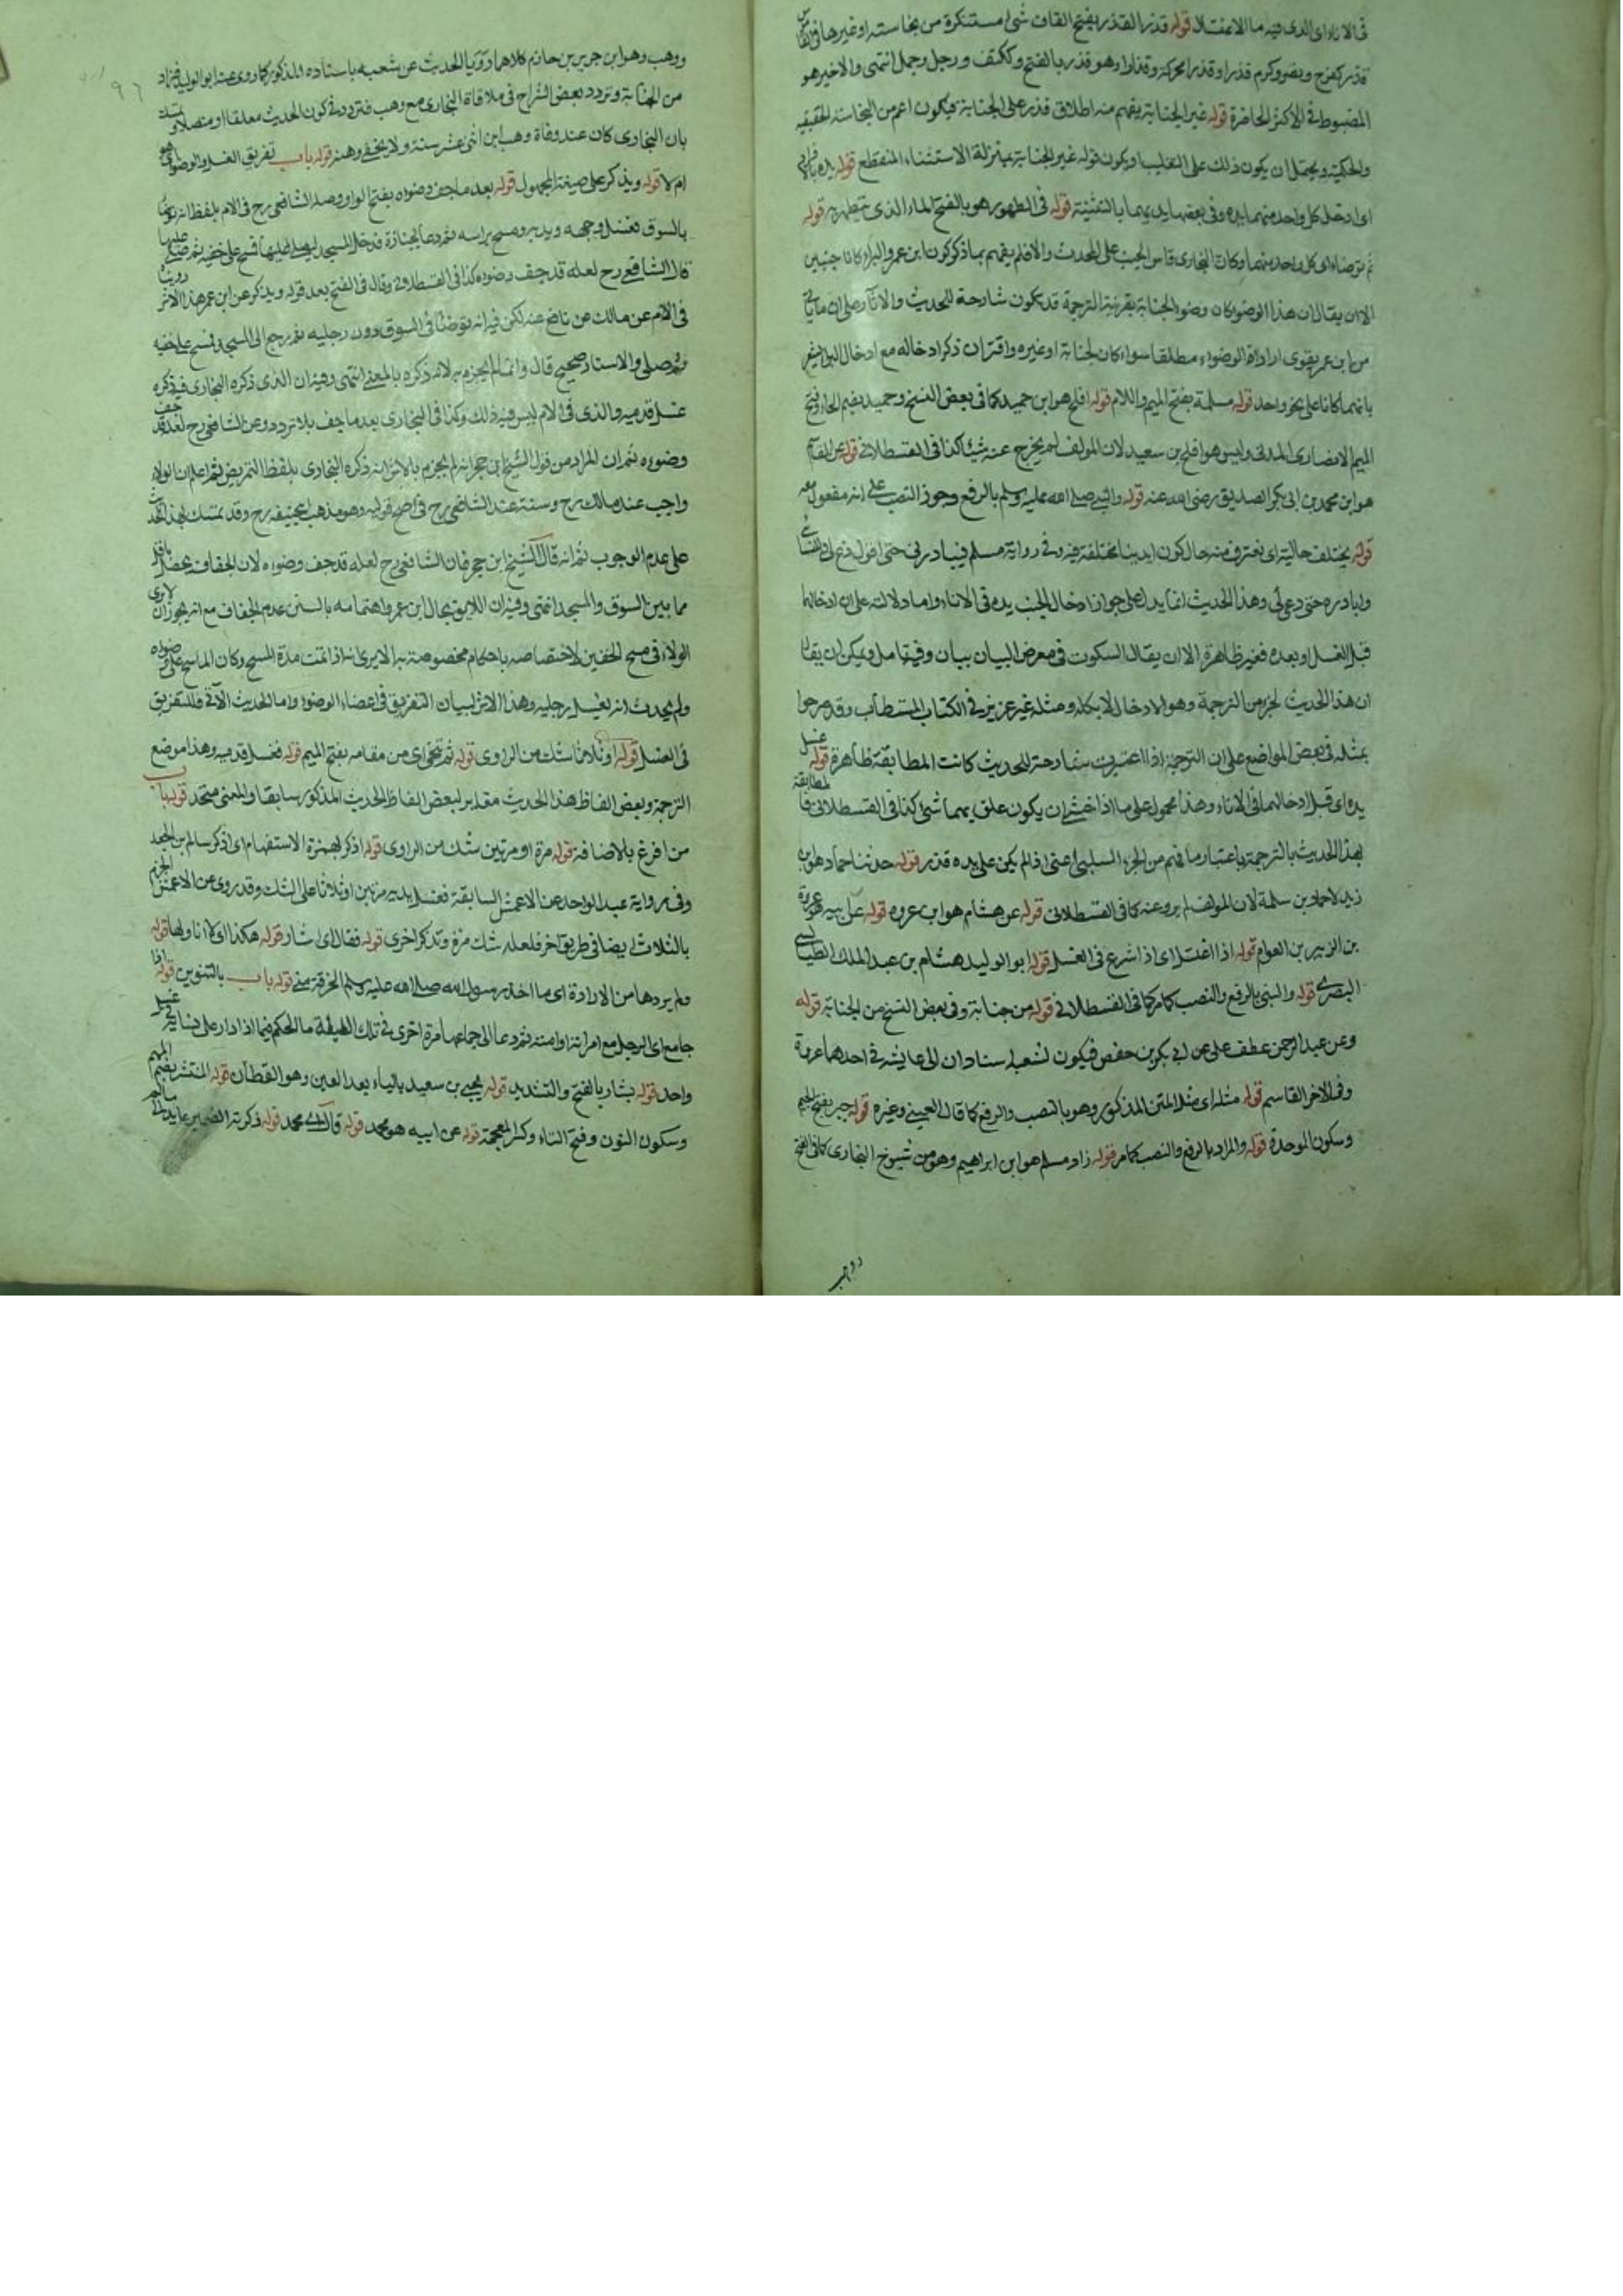 فى الاناء اى الذى فيه ماء الاغتسال قوله قذر القذر بفتح القاف شئ مستنكرة من نجاسته او غيرها فى القاموس
قذر كفرح ونصر وكرم قذرا وقذرا محركة وقذارة وهو قذر بالفتح وككتف ورجل وجمل انتهى والاخير هو
المضبوط فى الاكثر الحاضرة قوله غير الجنابة يفهم منه اطلاق قذر على الجنابة فيكون اعم من النجاسة الحقيقية
والحكمية ويحتمل ان يكون ذلك على التغليب او يكون قوله غير الجنابة بمنزلة الاستثناء المنقطع قوله يده بالافراد
اى ادخل كل واحد منهما يده وفى بعضها يديهما بالتثنية قوله فى الطهور هو بالفتح الماء الذى يتطهر به قوله
ثم توضاء اى كل واحد منهما وكان البخارى قاس الجنب على المحدث والا فلم يفهم بما ذكر كون ابن عمر والبراء كانا جنبين
الا ان يقال ان هذا الوضوء كان وضوء الجنابة بقرينة الترجمة قد يكون شارحة للحديث والاثار وصلى ان ما ياتى
من ابن عمر يقوى ارادة الوضوء مطلقا سواء كان لجنابة او غيره واقتران ذكر ادخاله مع ادخال البراء يشعر
بانهما كانا على نحو واحد قوله مسلمة بفتح الميم واللام قوله افلح هو ابن حميد كما فى بعض النسخ وحميد بضم الحاء وفتح
الميم الانصارى المدنى وليس هو افلح بن سعيد لان المولف لم يخرج عنه شيئا كذا فى القسطلانى قوله عن القاسم
هو ابن محمد بن ابى بكر الصديق رضى الله عنه قوله والنبى صلى الله عليه وسلم بالرفع وجوز النصب على انه مفعول معه
قوله يختلف حالية اى نغترف منه حال كون ايدينا مختلفة فيه وفى رواية مسلم فيبادرنى حتى اقول دع لى وللنسائى
وابادره حتى دعى لى وهذا الحديث انما يدل على جواز ادخال الجنب يده فى الاناء واما دلالته على ان ادخالها
قبل الغسل وبعده فغير ظاهرة الا ان يقال السكوت فى معرض البيان بيان وفيه تامل ويمكن ان يقال
ان هذا الحديث لجزء من الترجمة وهو الادخال لا بكله ومثله غير عزيز فى الكتاب المستطاب وقد صرحوا
بمثله فى بعض المواضع على ان الترجمة اذا اعتبرت شارحة للحديث كانت المطابقة ظاهرة قوله غسل
يده اى قبل ادخالهما فى الاناء وهذا محمول على ما اذا خشى ان يكون علق بهما شئ كذا فى القسطلانى فالمطابقة
بهذا الحديث بالترجمة باعتبار ما فهم من الجزء السلبى اعنى اذا لم يكن على يده قذر قوله حدثنا حماد هو ابن
زيد لا حماد بن سلمة لان المولف لم يرو عنه كما فى القسطلانى قوله عن هشام هو ابن عروه قوله عن ابيه هو عروة
بن الزبير بن العوام قوله اذا اغتسل اى اذا شرع فى الغسل قوله ابو الوليد هشام بن عبد الملك الطيالسى
البصرى قوله والنبى بالرفع والنصب كما مر كما فى القسطلانى قوله من جنابة وفى بعض النسخ من الجنابة قوله
وعن عبد الرحمن عطف على عن ابى بكر بن حفص فيكون لشعبة اسنادان الى عايشة فى احدهما عروة
وفى الاخر القاسم قوله مثله اى مثل المتن المذكور وهو بالنصب والرفع كما قال العينى وغيره قوله جبر بفتح الجيم
وسكون الموحدة قوله والمراة بالرفع والنصب كما مر قوله زاد مسلم هو ابن ابراهيم وهو من شيوخ البخارى كما فى الفتح
ووهب
ووهب وهو ابن جرير بن حازم كلاهما رويا الحديث عن شعبة باسناده المذكور كما روى عنه ابو الوليد فزاد
من الجنابة وتردد بعض الشراح فى ملاقاة البخارى مع وهب فتردد فى كون الحديث معلقا او متصلا وتمسك
بان البخارى كان عند وفاة وهب ابن اثنى عشر سنة ولا يخفى وهنه قوله باب تفريق الغسل والوضوء هو
ام لا قوله ويذكر على صيغة المجهول قوله بعد ما جف وضوءه بفتح الواو وصله الشافعى رح فى الام بلفظ انه توضأ
بالسوق فغسل وجهه ويديه ومسح براسه ثم دعا لجنازة فدخل المسجد ليصلى عليها فمسح على خفيه ثم صلى عليها
قال الشافعى رح لعله قد جف وضوءه كذا فى القسطلانى وقال فى الفتح بعد قوله ويذكر عن ابن عمر هذا الاثر روينا
فى الام عن مالك عن نافع عنه لكن فيه انه توضأ فى السوق دون رجليه ثم رجع الى المسجد فمسح على خفيه
ثم صلى والاسناد صحيح قال وانما لم يجزم به لانه ذكره بالمعنى انتهى وفيه ان الذى ذكره البخارى فيه ذكر
غسل قدميه والذى فى الام ليس فيه ذلك وكذا فى البخارى بعد ما جف بلا تردد وعن الشافعى رح لعله قد جف
وضوءه ثم ان المراد من قول الشيخ ابن حجر انه لم يجزم بالاثر انه ذكره البخارى بلفظ التمريض ثم اعلم ان الولاء
واجب عند مالك رح وسنة عند الشافعى رح فى اصح قوليه وهو مذهب ابى حنيفة رح وقد تمسك بهذا الحديث
على عدم الوجوب ثم انه قال الشيخ ابن حجر فان الشافعى رح لعله قد جف وضوءه لان الجفاف قد يحصل باقل
مما بين السوق والمسجد انتهى وفيه ان اللايق بحال ابن عمر واهتمامه بالسنن عدم الجفاف مع انه يجوز ان لا يرى
الولاء فى مسح الخفين لاختصاصه باحكام مخصوصة به الا يرى انه اذا تمت مدة المسح وكان الماسح على وضوءه
ولم يحدث انه يغسل رجليه وهذا الاثر لبيان التفريق فى اعضاء الوضوء واما الحديث الآتى فللتفريق
فى الغسل قوله او ثلاثا شك من الراوى قوله ثم تنحى اى من مقامه بفتح الميم قوله فغسل قدميه وهذا موضع
الترجمة وبعض الفاظ هذا الحديث مغاير لبعض الفاظ الحديث المذكور سابقا والمعنى متحد قوله باب
من افرغ بالاضافة قوله مرة او مرتين شك من الراوى قوله اذكر بهمزة الاستفهام اى اذكر سالم بن الجعد
وفى رواية عبد الواحد عن الاعمش السابقة فغسل يديه مرتين او ثلاثا على الشك وقد روى عن الاعمش الجزم
بالثلاث ايضا فى طريق اخر فلعله شك مرة وتذكر اخرى قوله فقال اى اشار قوله هكذا اى لا اناولها قوله
ولم يردها من الارادة اى ما اخذ رسول الله صلى الله عليه وسلم الخرقة منى قوله باب بالتنوين قوله اذا
جامع اى الرجل مع امراته او امته ثم دعا الى جماعها مرة اخرى فى تلك الليلة ما الحكم فيما اذا دار على نسائه فى غسل
واحد قوله بشار بالفتح والتشديد قوله يحيى بن سعيد بالياء بعد العين وهو القطان قوله المنتشر بضم الميم
وسكون النون وفتح التاء وكسر المعجمة قوله عن ابيه هو محمد قوله قال اى محمد قوله ذكرته الضمير عايد الى